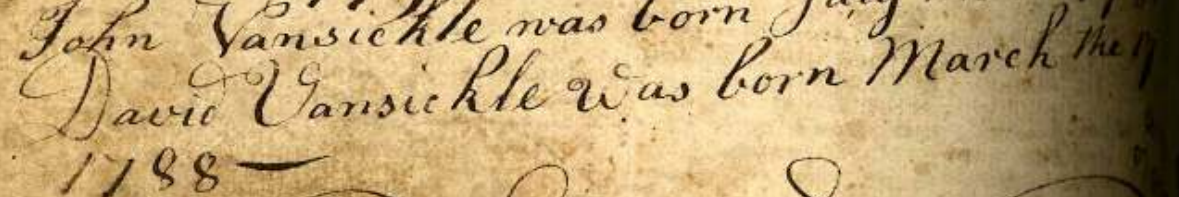 John Vansickle was born July
David Vansickle Was born March the
1788 —